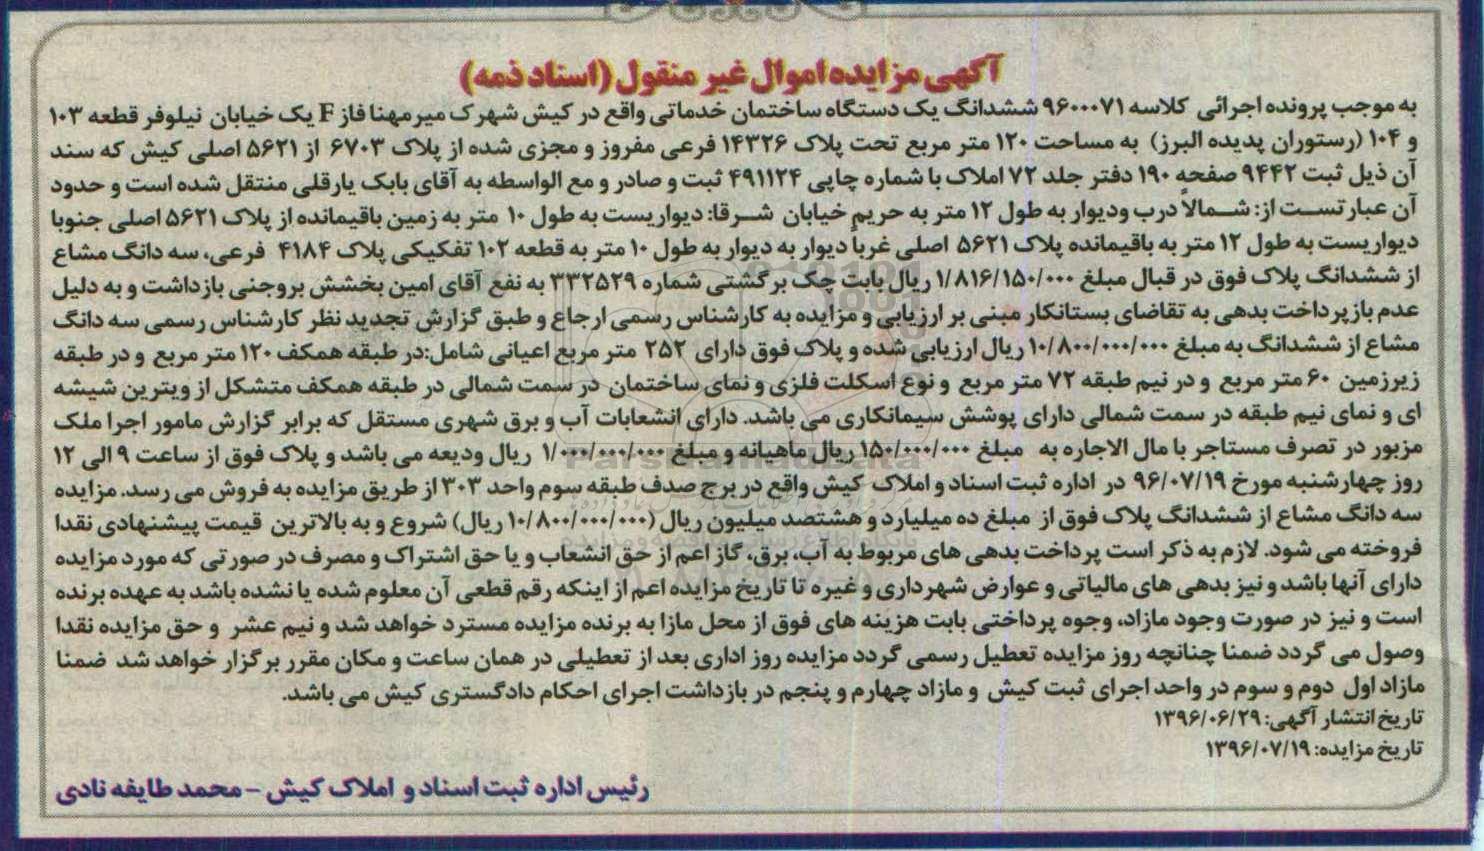 آگهی مزایده اموال غیر منقول (اسناد ذمه)
به موجب پرونده اجرائی کلاسه ۹۶۰۰۰۷۱ ششدانگ یک دستگاه ساختمان خدماتی واقع در کیش شهرک میرمهنا فاز F یک خیابان نیلوفر قطعه ۱۰۳
و ۱۰۴ (رستوران پدیده البرز) به مساحت ۱۲۰ متر مربع تحت پلاک ۱۴۳۲۶ فرعی مفروز و مجزی شده از پلاک ۶۷۰۳ از ۵۶۲۱ اصلی کیش که سند
آن ذیل ثبت ۹۴۴۲ صفحه ۱۹۰ دفتر جلد ۷۲ املاک با شماره چاپی ۴۹۱۱۲۴ ثبت و صادر و مع الواسطه به آقای بابک یارقلی منتقل شده است و حدود
آن عبارتست از: شمالاً درب ودیوار به طول ۱۲ متر به حریم خیابان شرقا: دیواریست به طول ۱۰ متر به زمین باقیمانده از پلاک ۵۶۲۱ اصلی جنوبا
دیواریست به طول ۱۲ متر به باقیمانده پلاک ۵۶۲۱ اصلی غرباً دیوار به دیوار به طول ۱۰ متر به قطعه ۱۰۲ تفکیکی پلاک ۴۱۸۴ فرعی، سه دانگ مشاع
از ششدانگ پلاک فوق در قبال مبلغ ۱/۸۱۶/۱۵۰/۰۰۰ ریال بابت چک برگشتی شماره ۳۳۲۵۲۹ به نفع آقای امین بخشش بروجنی بازداشت و به دلیل
عدم بازپرداخت بدهی به تقاضای بستانکار مبنی بر ارزیابی و مزایده به کارشناس رسمی ارجاع و طبق گزارش تجدید نظر کارشناس رسمی سه دانگ
مشاع از ششدانگ به مبلغ ۱۰/۸۰۰/۰۰۰/۰۰۰ ریال ارزیابی شده و پلاک فوق دارای ۲۵۲ متر مربع اعیانی شامل:در طبقه همکف ۱۲۰ متر مربع و در طبقه
زیرزمین ۶۰ متر مربع و در نیم طبقه ۷۲ متر مربع و نوع اسکلت فلزی و نمای ساختمان در سمت شمالی در طبقه همکف متشکل از ویترین شیشه
ای و نمای نیم طبقه در سمت شمالی دارای پوشش سیمانکاری می باشد. دارای انشعابات آب و برق شهری مستقل که برابر گزارش مامور اجرا ملک
مزبور در تصرف مستاجر با مال الاجاره به مبلغ ۱۵۰/۰۰۰/۰۰۰ ریال ماهیانه و مبلغ ۱/۰۰۰/۰۰۰/۰۰۰ ریال ودیعه می باشد و پلاک فوق از ساعت ۹ الی ۱۲
روز چهارشنبه مورخ ۹۶/۰۷/۱۹ در اداره ثبت اسناد و املاک کیش واقع در برج صدف طبقه سوم واحد ۳۰۳ از طریق مزایده به فروش می رسد. مزایده
سه دانگ مشاع از ششدانگ پلاک فوق از مبلغ ده میلیارد و هشتصد میلیون ریال (۱۰/۸۰۰/۰۰۰/۰۰۰ ریال) شروع و به بالاترین قیمت پیشنهادی نقدا
فروخته می شود. لازم به ذکر است پرداخت بدهی های مربوط به آب، برق، گاز اعم از حق انشعاب و یا حق اشتراک و مصرف در صورتی که مورد مزایده
دارای آنها باشد و نیز بدهی های مالیاتی و عوارض شهرداری و غیره تا تاریخ مزایده اعم از اینکه رقم قطعی آن معلوم شده یا نشده باشد به عهده برنده
است و نیز در صورت وجود مازاد، وجوه پرداختی بابت هزینه های فوق از محل مازا به برنده مزایده مسترد خواهد شد و نیم عشر و حق مزایده نقدا
وصول می گردد ضمنا چنانچه روز مزایده تعطیل رسمی گردد مزایده روز اداری بعد از تعطیلی در همان ساعت و مکان مقرر برگزار خواهد شد ضمنا
مازاد اول دوم و سوم در واحد اجرای ثبت کیش و مازاد چهارم و پنجم در بازداشت اجرای احکام دادگستری کیش می باشد.
تاریخ انتشار آگهی: ۱۳۹۶/۰۶/۲۹
تاریخ مزایده: ۱۳۹۶/۰۷/۱۹
رئیس اداره ثبت اسناد و املاک کیش - محمد طایفه نادی